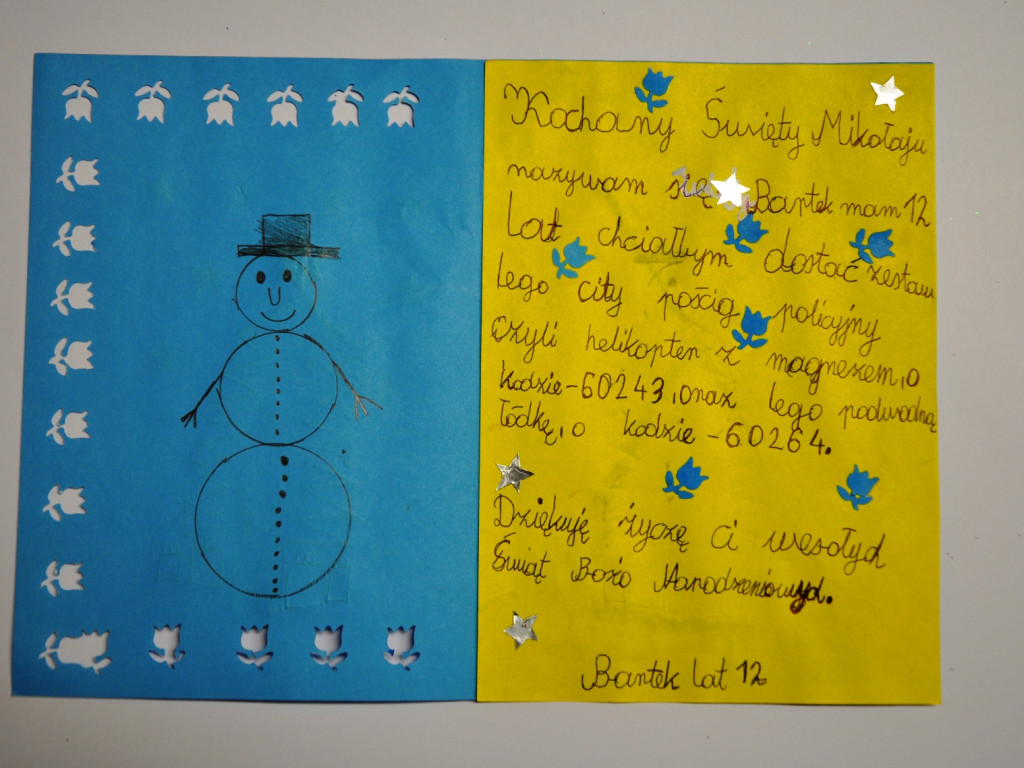 Kochany Święty Mikołaju
nazywam się Bartek mam 12
Lat chciałbym dostać zestaw
Lego city pościg policyjny
czyli helikopter z magnezem, o
kodzie - 60243, oraz Lego podwodną
łódkę, o kodzie - 60264.
Dziękuję życzę Ci wesołych
Świąt Bożo Narodzeniowych.
Bartek lat 12